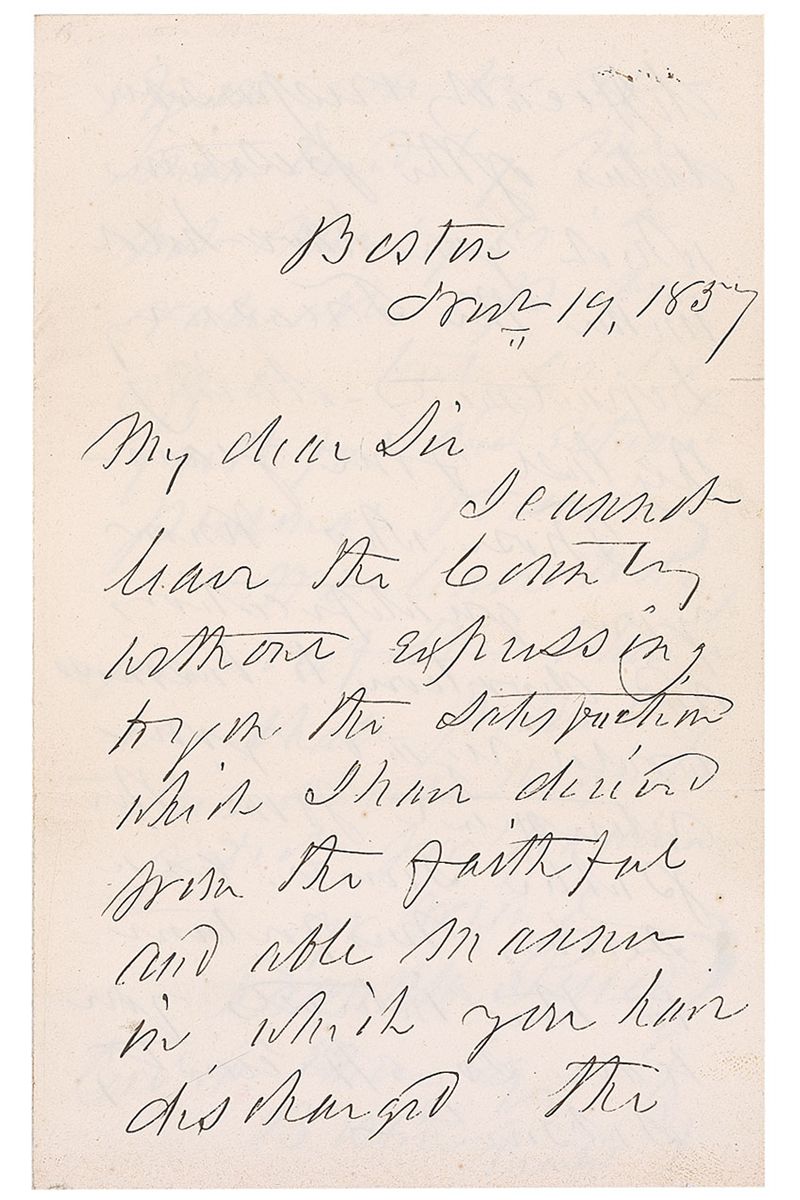 Boston
Novr 19, 1857
My dear Sir
I cannot
leave the Country
without expressing
to you the Satisfaction
which I have derived
from the faithful
and able manner
in which you have
discharged the